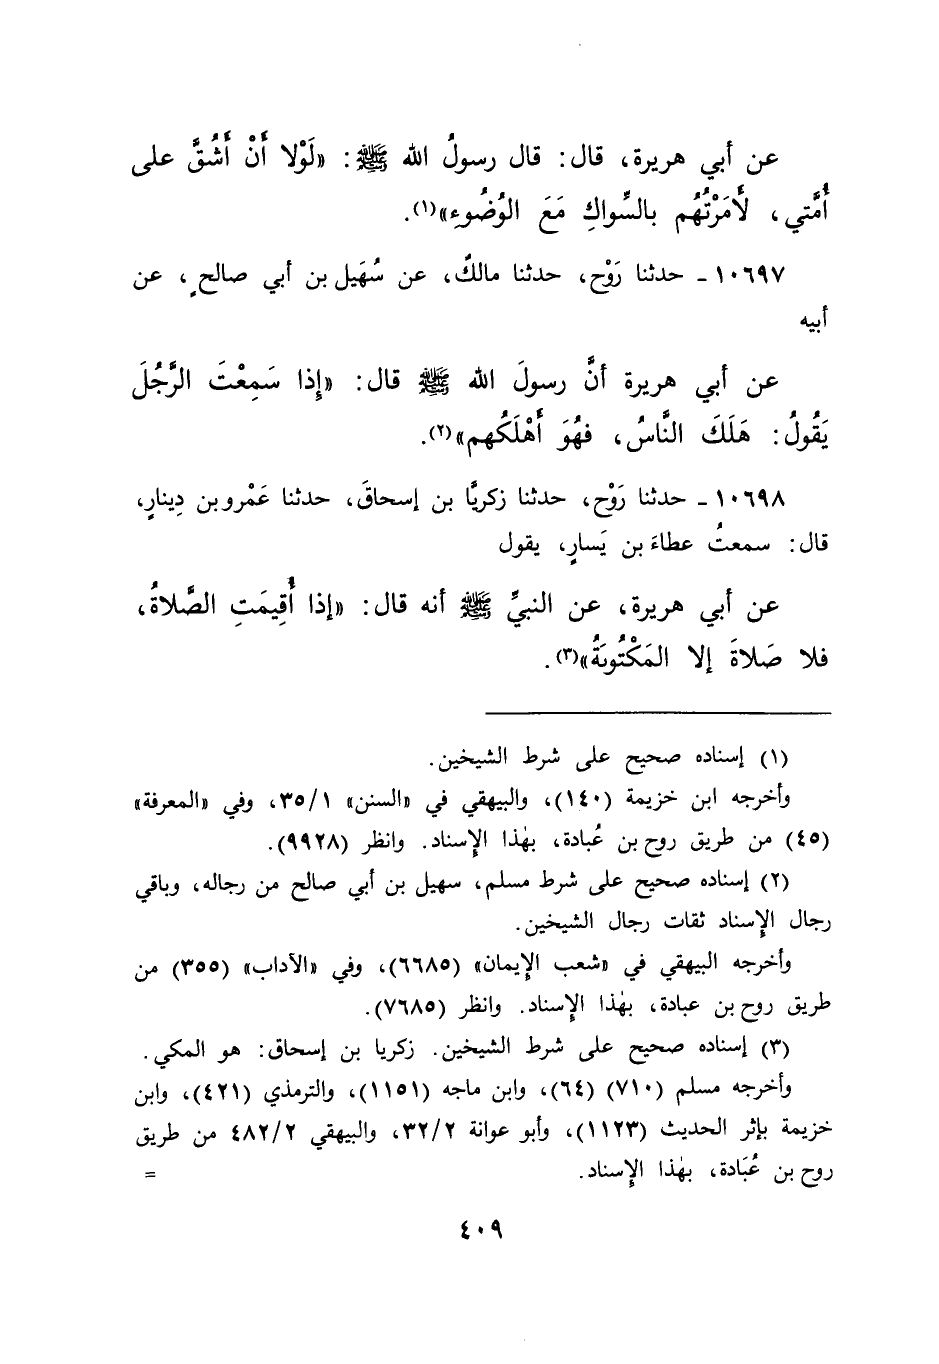 عن أبي هريرة، قال: قال رسولُ الله ﷺ: «لَوْلا أَنْ أَشُقَّ على
أُمَّتي، لأَمَرْتُهُم بالسِّواكِ مَعَ الوُضُوءِ»(١).
١٠٦٩٧ ـ حدثنا رَوْح، حدثنا مالكٌ، عن سُهَيل بن أبي صالحٍ، عن
أبيه
عن أبي هريرة أنَّ رسولَ الله ﷺ قال: «إِذا سَمِعْتَ الرَّجُلَ
يَقُولُ: هَلَكَ النَّاسُ، فهُوَ أَهْلَكُهم»(٢).
١٠٦٩٨ ـ حدثنا رَوْح، حدثنا زكريَّا بن إسحاقَ، حدثنا عَمْرو بن دِينارٍ،
قال: سمعتُ عطاءَ بن يَسارٍ، يقول
عن أبي هريرة، عن النبيِّ ﷺ أنه قال: «إذا أُقِيمَتِ الصَّلاةُ،
فلا صَلاةَ إلا المَكْتُوبَةُ»(٣).
(١) إسناده صحيح على شرط الشيخين.
وأخرجه ابن خزيمة (١٤٠)، والبيهقي في «السنن» ٣٥/١، وفي «المعرفة»
(٤٥) من طريق روح بن عُبادة، بهٰذا الإِسناد. وانظر (٩٩٢٨).
(٢) إسناده صحيح على شرط مسلم، سهيل بن أبي صالح من رجاله، وباقي
رجال الإِسناد ثقات رجال الشيخين.
وأخرجه البيهقي في «شعب الإِيمان» (٦٦٨٥)، وفي «الآداب» (٣٥٥) من
طريق روح بن عبادة، بهٰذا الإِسناد. وانظر (٧٦٨٥).
(٣) إسناده صحيح على شرط الشيخين. زكريا بن إسحاق: هو المكي.
وأخرجه مسلم (٧١٠) (٦٤)، وابن ماجه (١١٥١)، والترمذي (٤٢١)، وابن
خزيمة بإثر الحديث (١١٢٣)، وأبو عوانة ٣٢/٢، والبيهقي ٤٨٢/٢ من طريق
روح بن عُبَادة، بهٰذا الإِسناد. =
٤٠٩